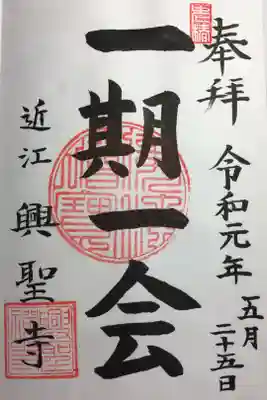 奉拝
令和元年
五月
二十五日
一期一会
近江
興聖寺